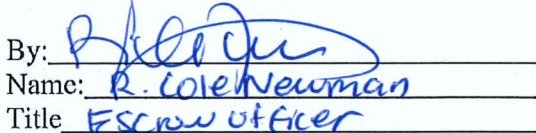 By:
Name: R. Cole Newman
Title Escrow Officer